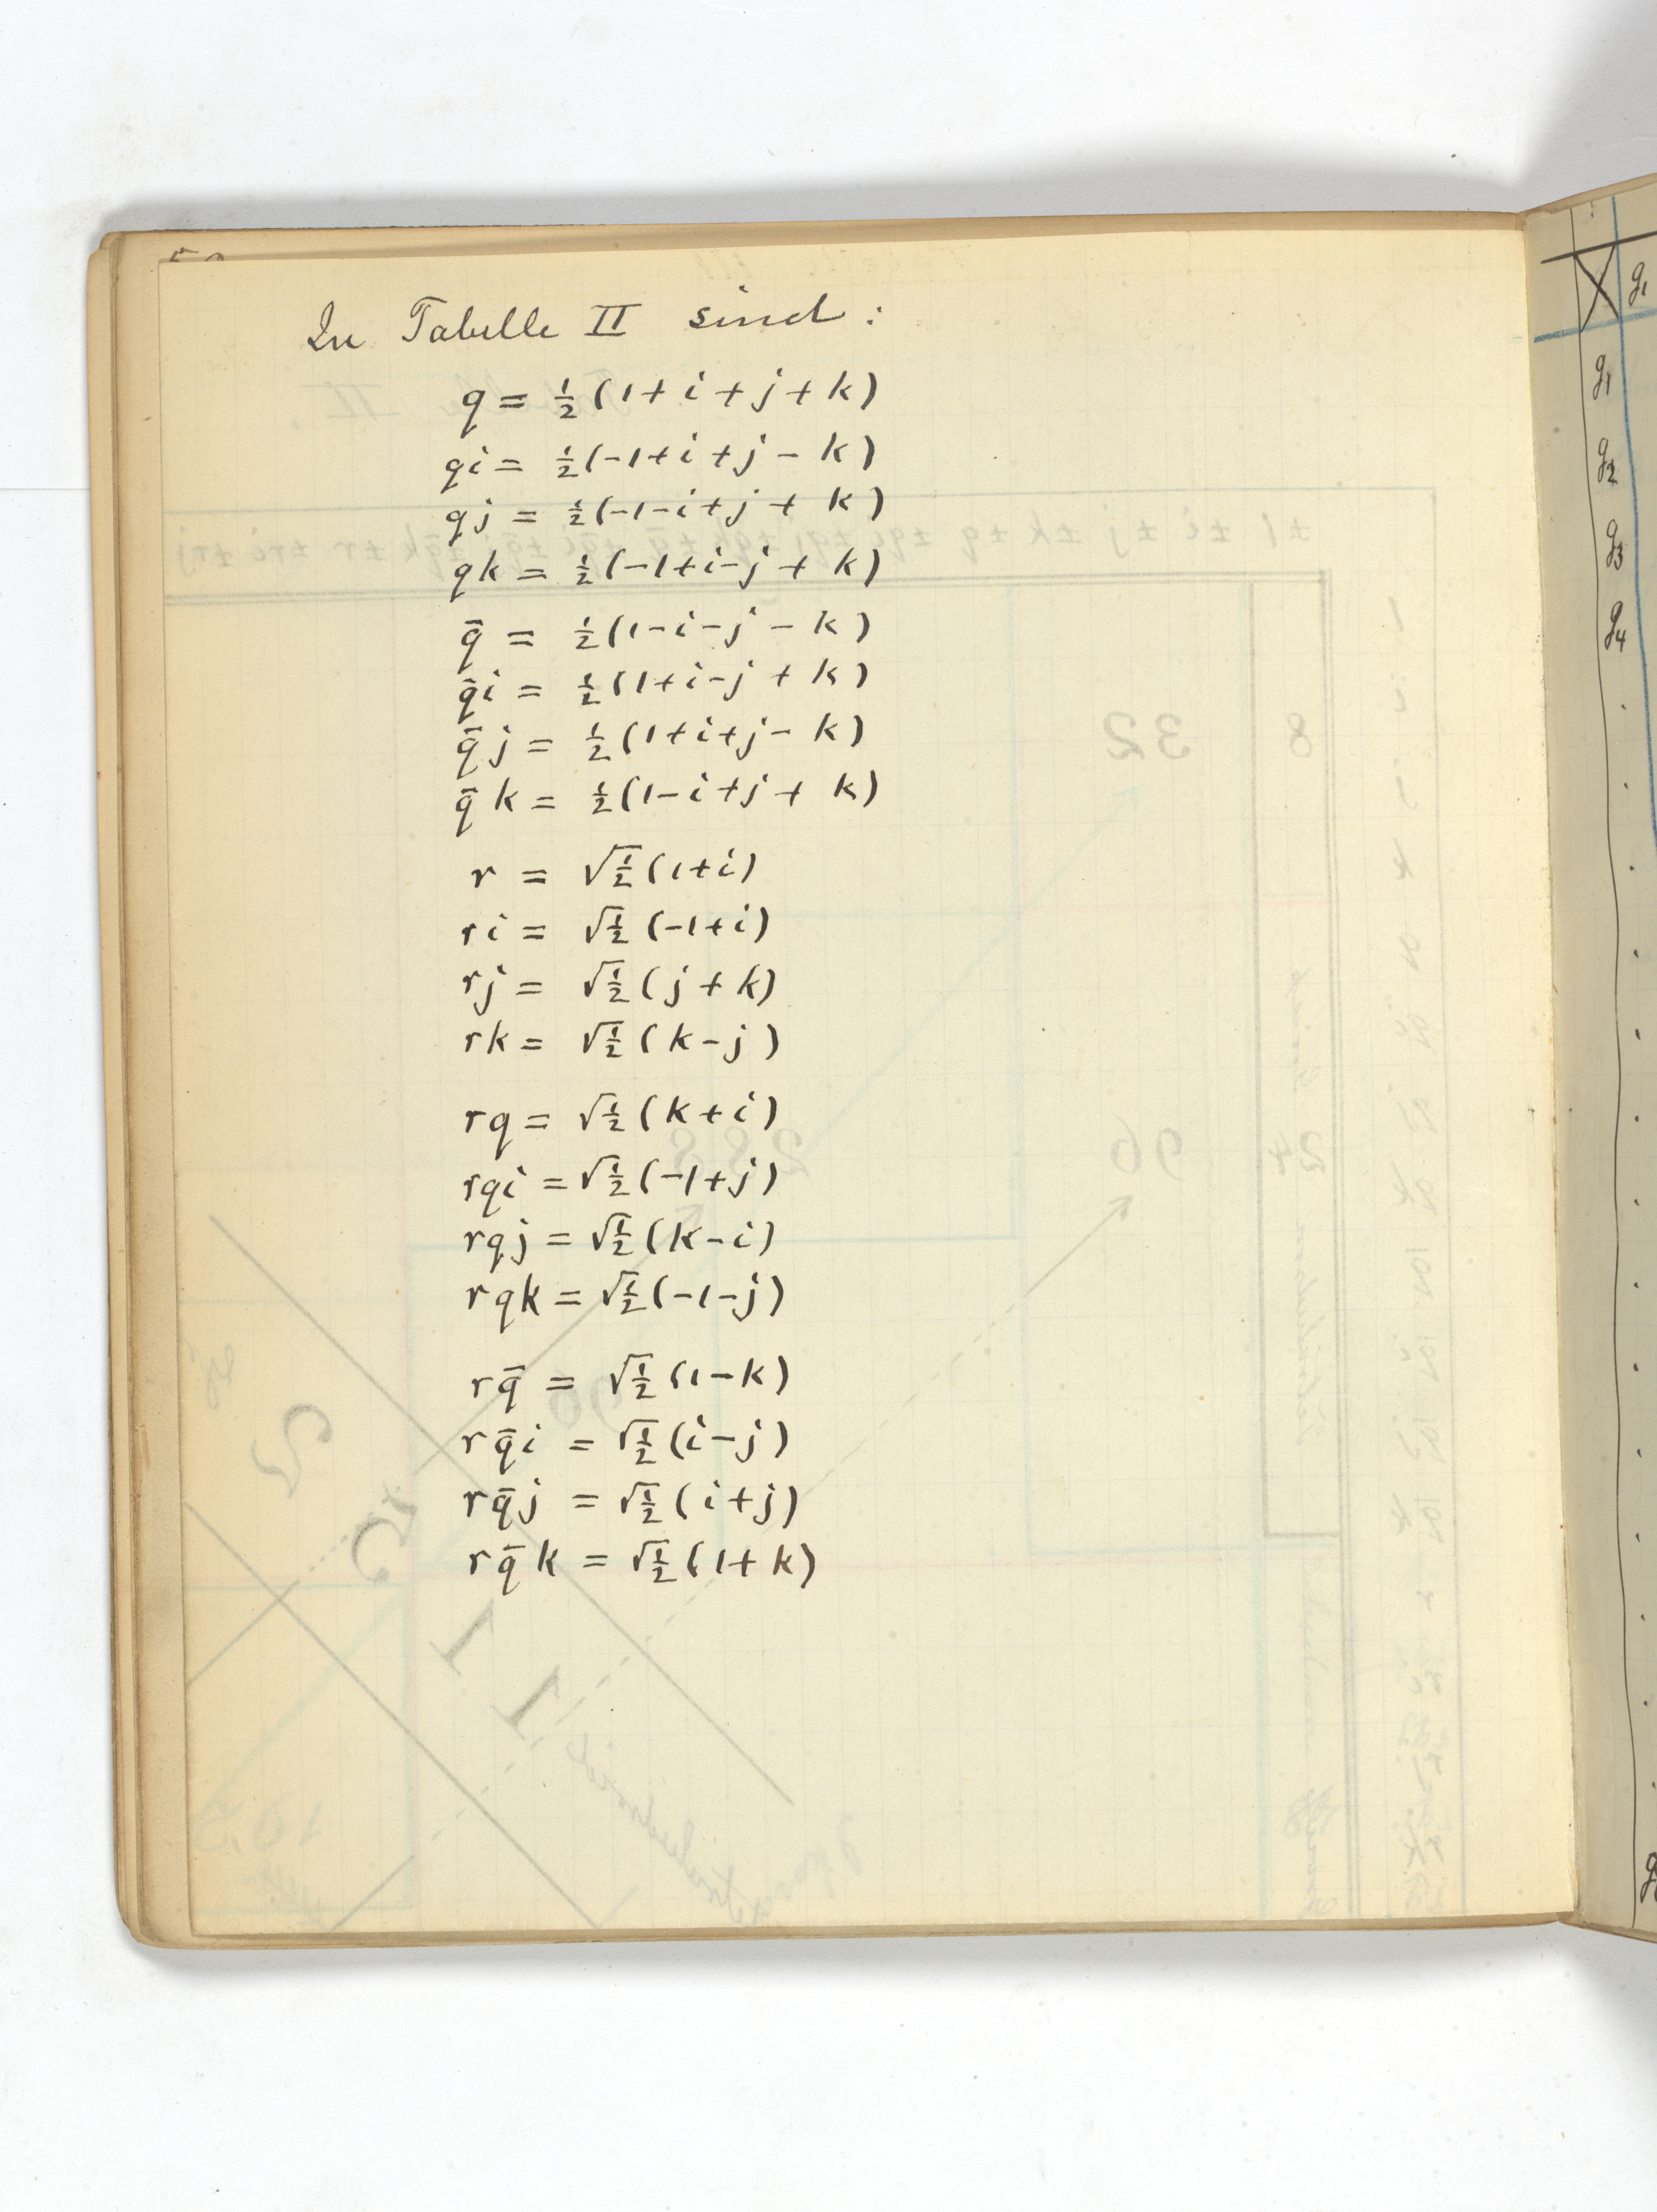 In Tabelle II sind :
q = ½ (1 + i + j + k)
qi = ½ (-1 + i + j - k)
qj = ½ (-1 - i + j + k)
qk = ½ (-1 + i - j + k)
q̄ = ½ (1 - i - j - k)
q̄i = ½ (1 + i - j + k)
q̄j = ½ (1 + i + j - k)
q̄k = ½ (1 - i + j + k)
r = √½ (1 + i)
ri = √½ (-1 + i)
rj = √½ (j + k)
rk = √½ (k - j)
rq = √½ (k + i)
rqi = √½ (-1 + j)
rqj = √½ (k - i)
rqk = √½ (-1 - j)
rq̄ = √½ (1 - k)
rq̄i = √½ (i - j)
rq̄j = √½ (i + j)
rq̄k = √½ (1 + k)
g₁
g₁
g₂
g₃
g₄